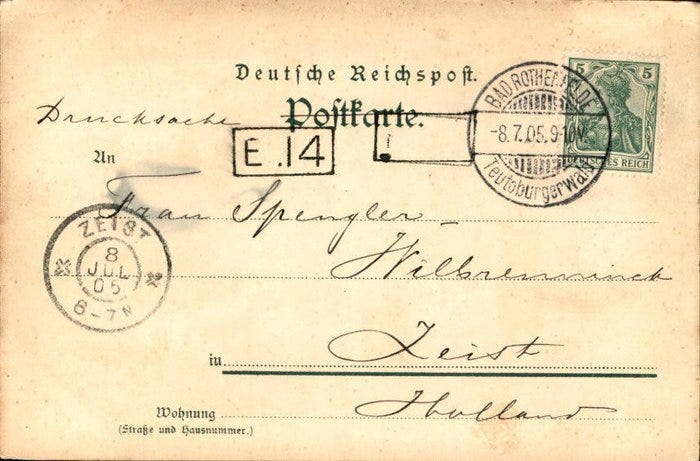 Deutsche Reichspost.
Postkarte.
Drucksache
E.14
BAD ROTHENFELDE
-8.7.05.9-10V.
Teutoburgerwald
5 5
DEUTSCHES REICH
An
Frau Spengler-
Wilbrenninck
ZEIST
8
JUL
05
6-7N
in Zeist
Wohnung
(Straße und Hausnummer.)
Holland